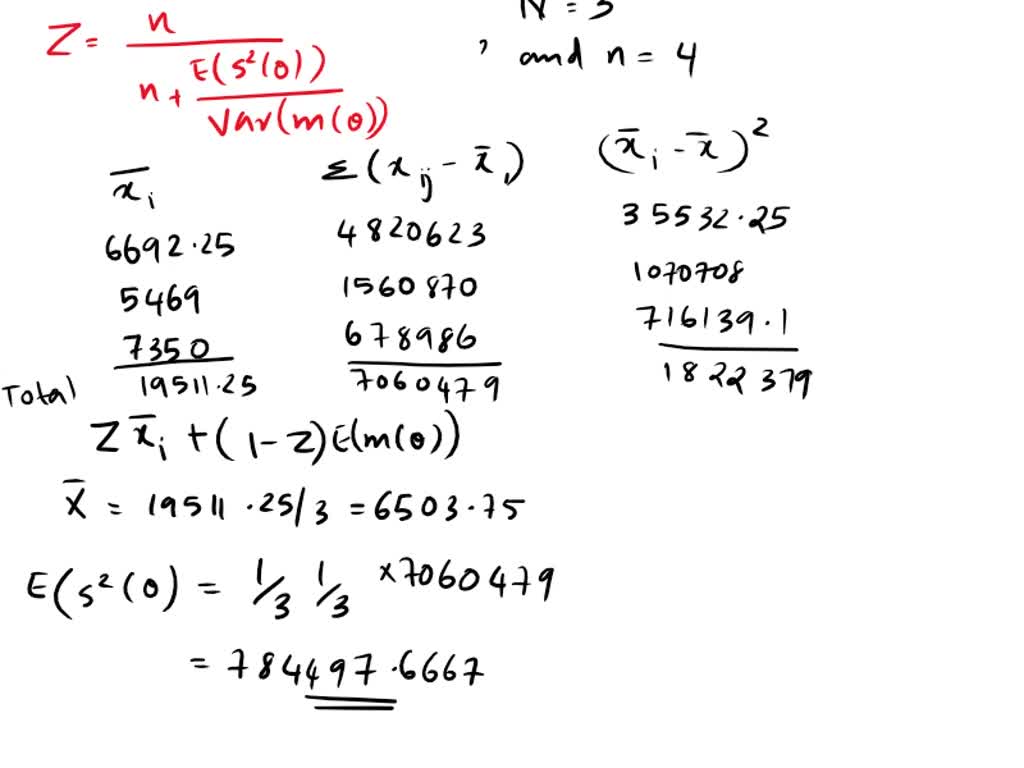 N = 3
Z = n / (n + E(s²(θ)) / Var(m(θ)))
, and n = 4
x̄ᵢ Σ(xᵢⱼ - x̄ᵢ) (x̄ᵢ - x̄)²
6692.25 4820623 35532.25
5469 1560870 1070708
7350 678986 716139.1
Total 19511.25 7060479 1822379
Z x̄ᵢ + (1 - Z) E(m(θ))
X̄ = 19511.25/3 = 6503.75
E(s²(θ) = 1/3 1/3 × 7060479
= 784497.6667